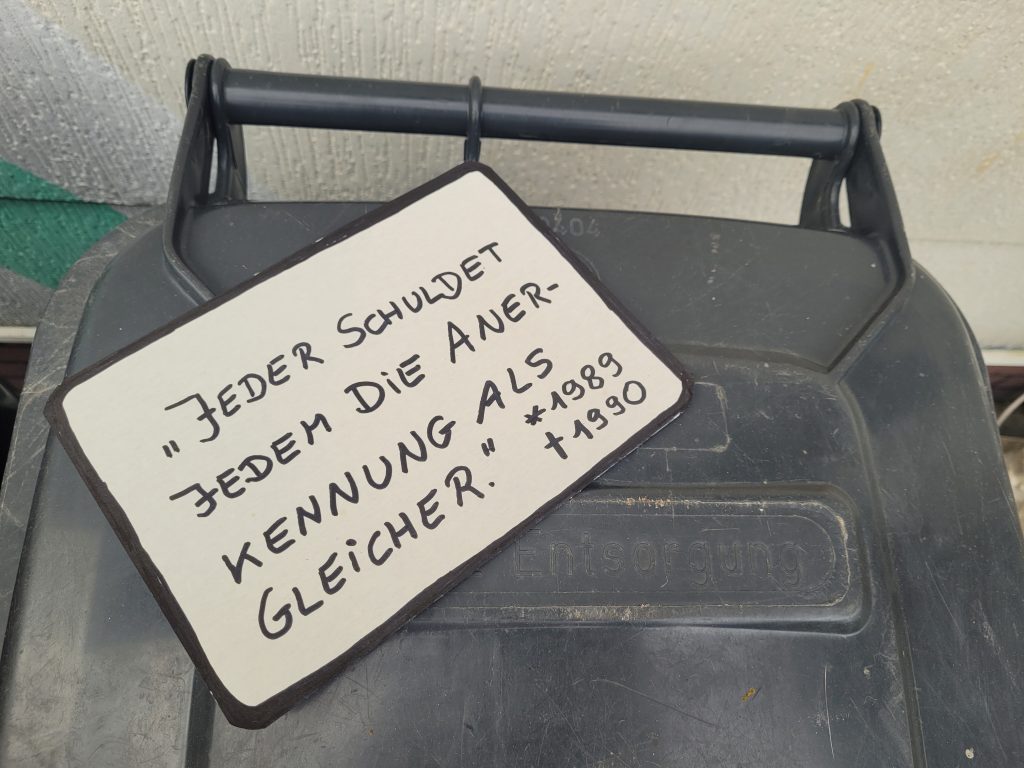 „JEDER SCHULDET
JEDEM DiE ANER-
KENNUNG ALS
GLEiCHER.“
*1989
†1990
Entsorgung